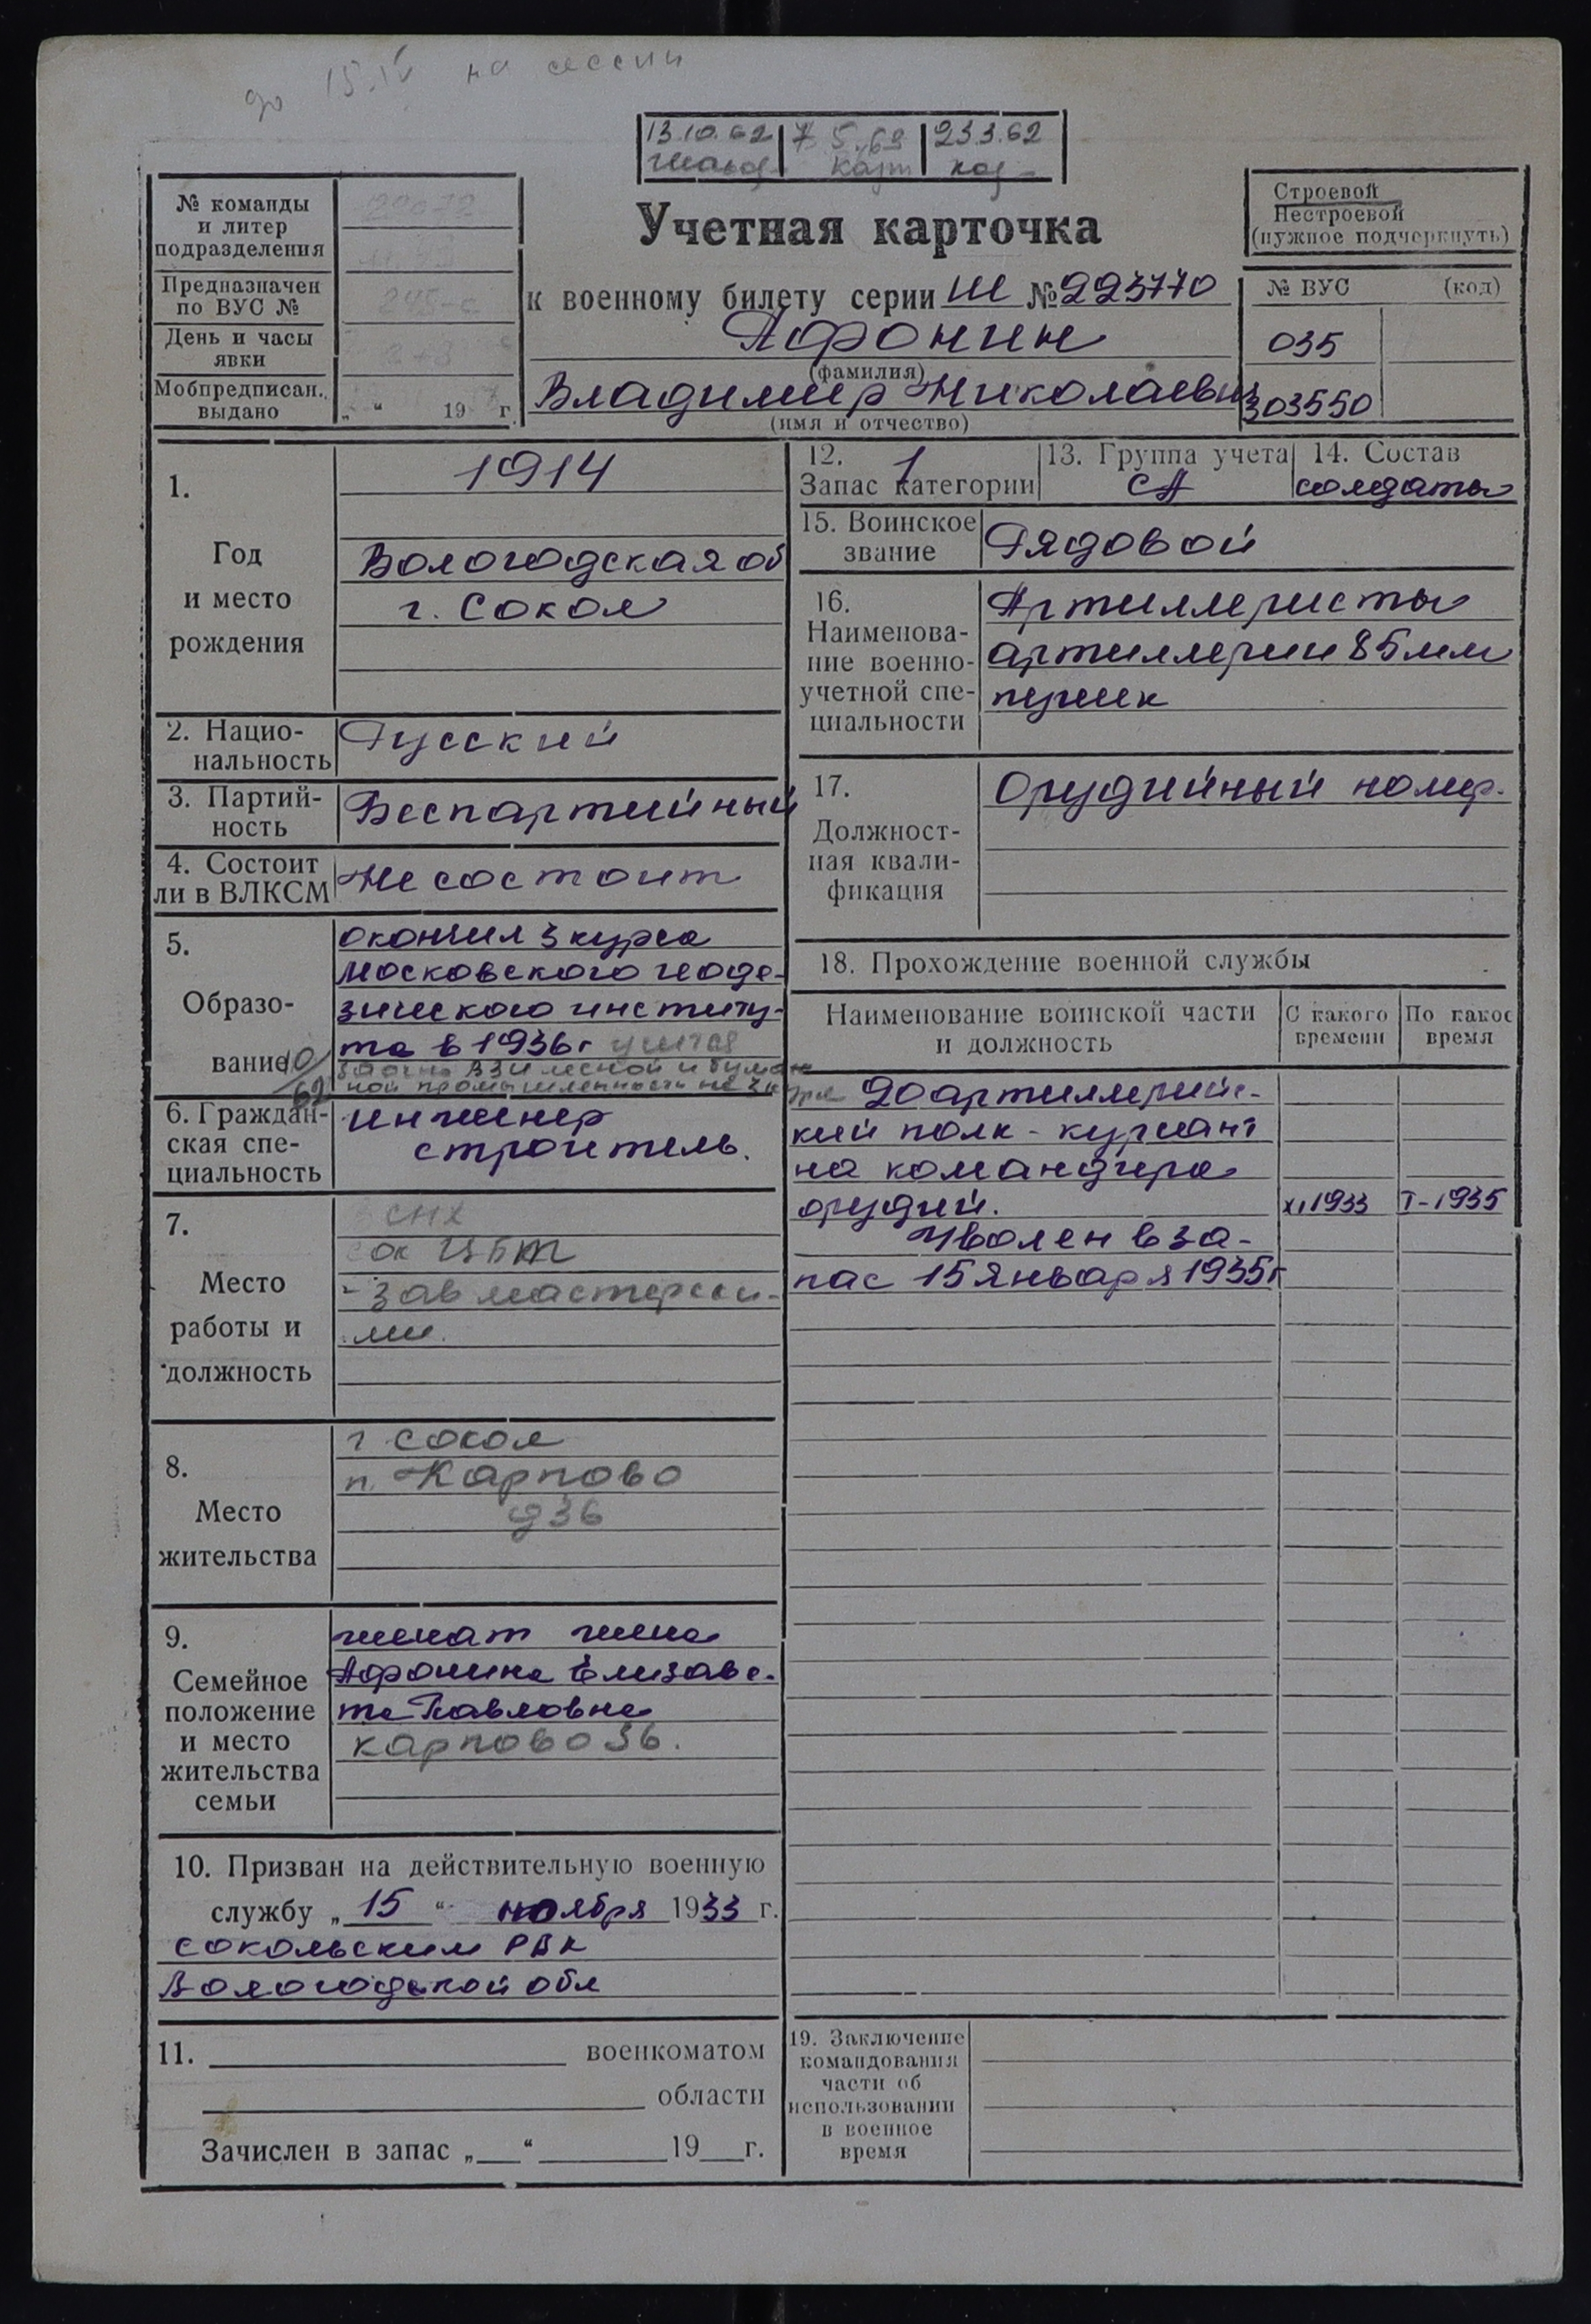 до 15.IV на сессии
13.10.62 7 5.69 23.3.62
№ команды
и литер
подразделения
Предназначен
по ВУС №
День и часы
явки
Мобпредписан.
выдано
„ “ 19 г.
Учетная карточка
к военному билету серии Ш № 223770
Афонин
(фамилия)
Владимир Николаевич
(имя и отчество)
Строевой
Нестроевой
(нужное подчеркнуть)
№ ВУС (код)
035
303550
1.
Год
и место
рождения
1914
Вологодская об
г. Сокол
2. Нацио-
нальность
Русский
3. Партий-
ность
Беспартийный
4. Состоит
ли в ВЛКСМ
Не состоит
5.
Образо-
вание
окончил 3 курса
Московского геоде-
зического институ-
та в 1936 г учится
заочно ВЗИ лесной и бумаж
ной промышленности на 3 к
6. Граждан-
ская спе-
циальность
инженер
строитель.
7.
Место
работы и
должность
СНХ
ЦБТ
- Зав мастерски-
ми.
8.
Место
жительства
г Сокол
п. Карпово
д 36
9.
Семейное
положение
и место
жительства
семьи
женат жена
Афонина Елизаве-
та Павловна
Карпово 36.
10. Призван на действительную военную
службу „15“ ноября 1933 г.
Сокольским РВК
Вологодской обл
11. военкоматом
области
Зачислен в запас „ “ 19 г.
12. 1
Запас категории
13. Группа учета
СА
14. Состав
солдаты
15. Воинское
звание
Рядовой
16.
Наименова-
ние военно-
учетной спе-
циальности
Артиллеристы
артиллерии 85 мм
пушек
17.
Должност-
ная квали-
фикация
Орудийный номер.
18. Прохождение военной службы
Наименование воинской части
и должность
С какого
времени
По какое
время
20 артиллерийс-
кий полк - курсант
на командира
орудий. XI 1933 I-1935
Уволен в за-
пас 15 января 1935 г
19. Заключение
командования
части об
использовании
в военное
время